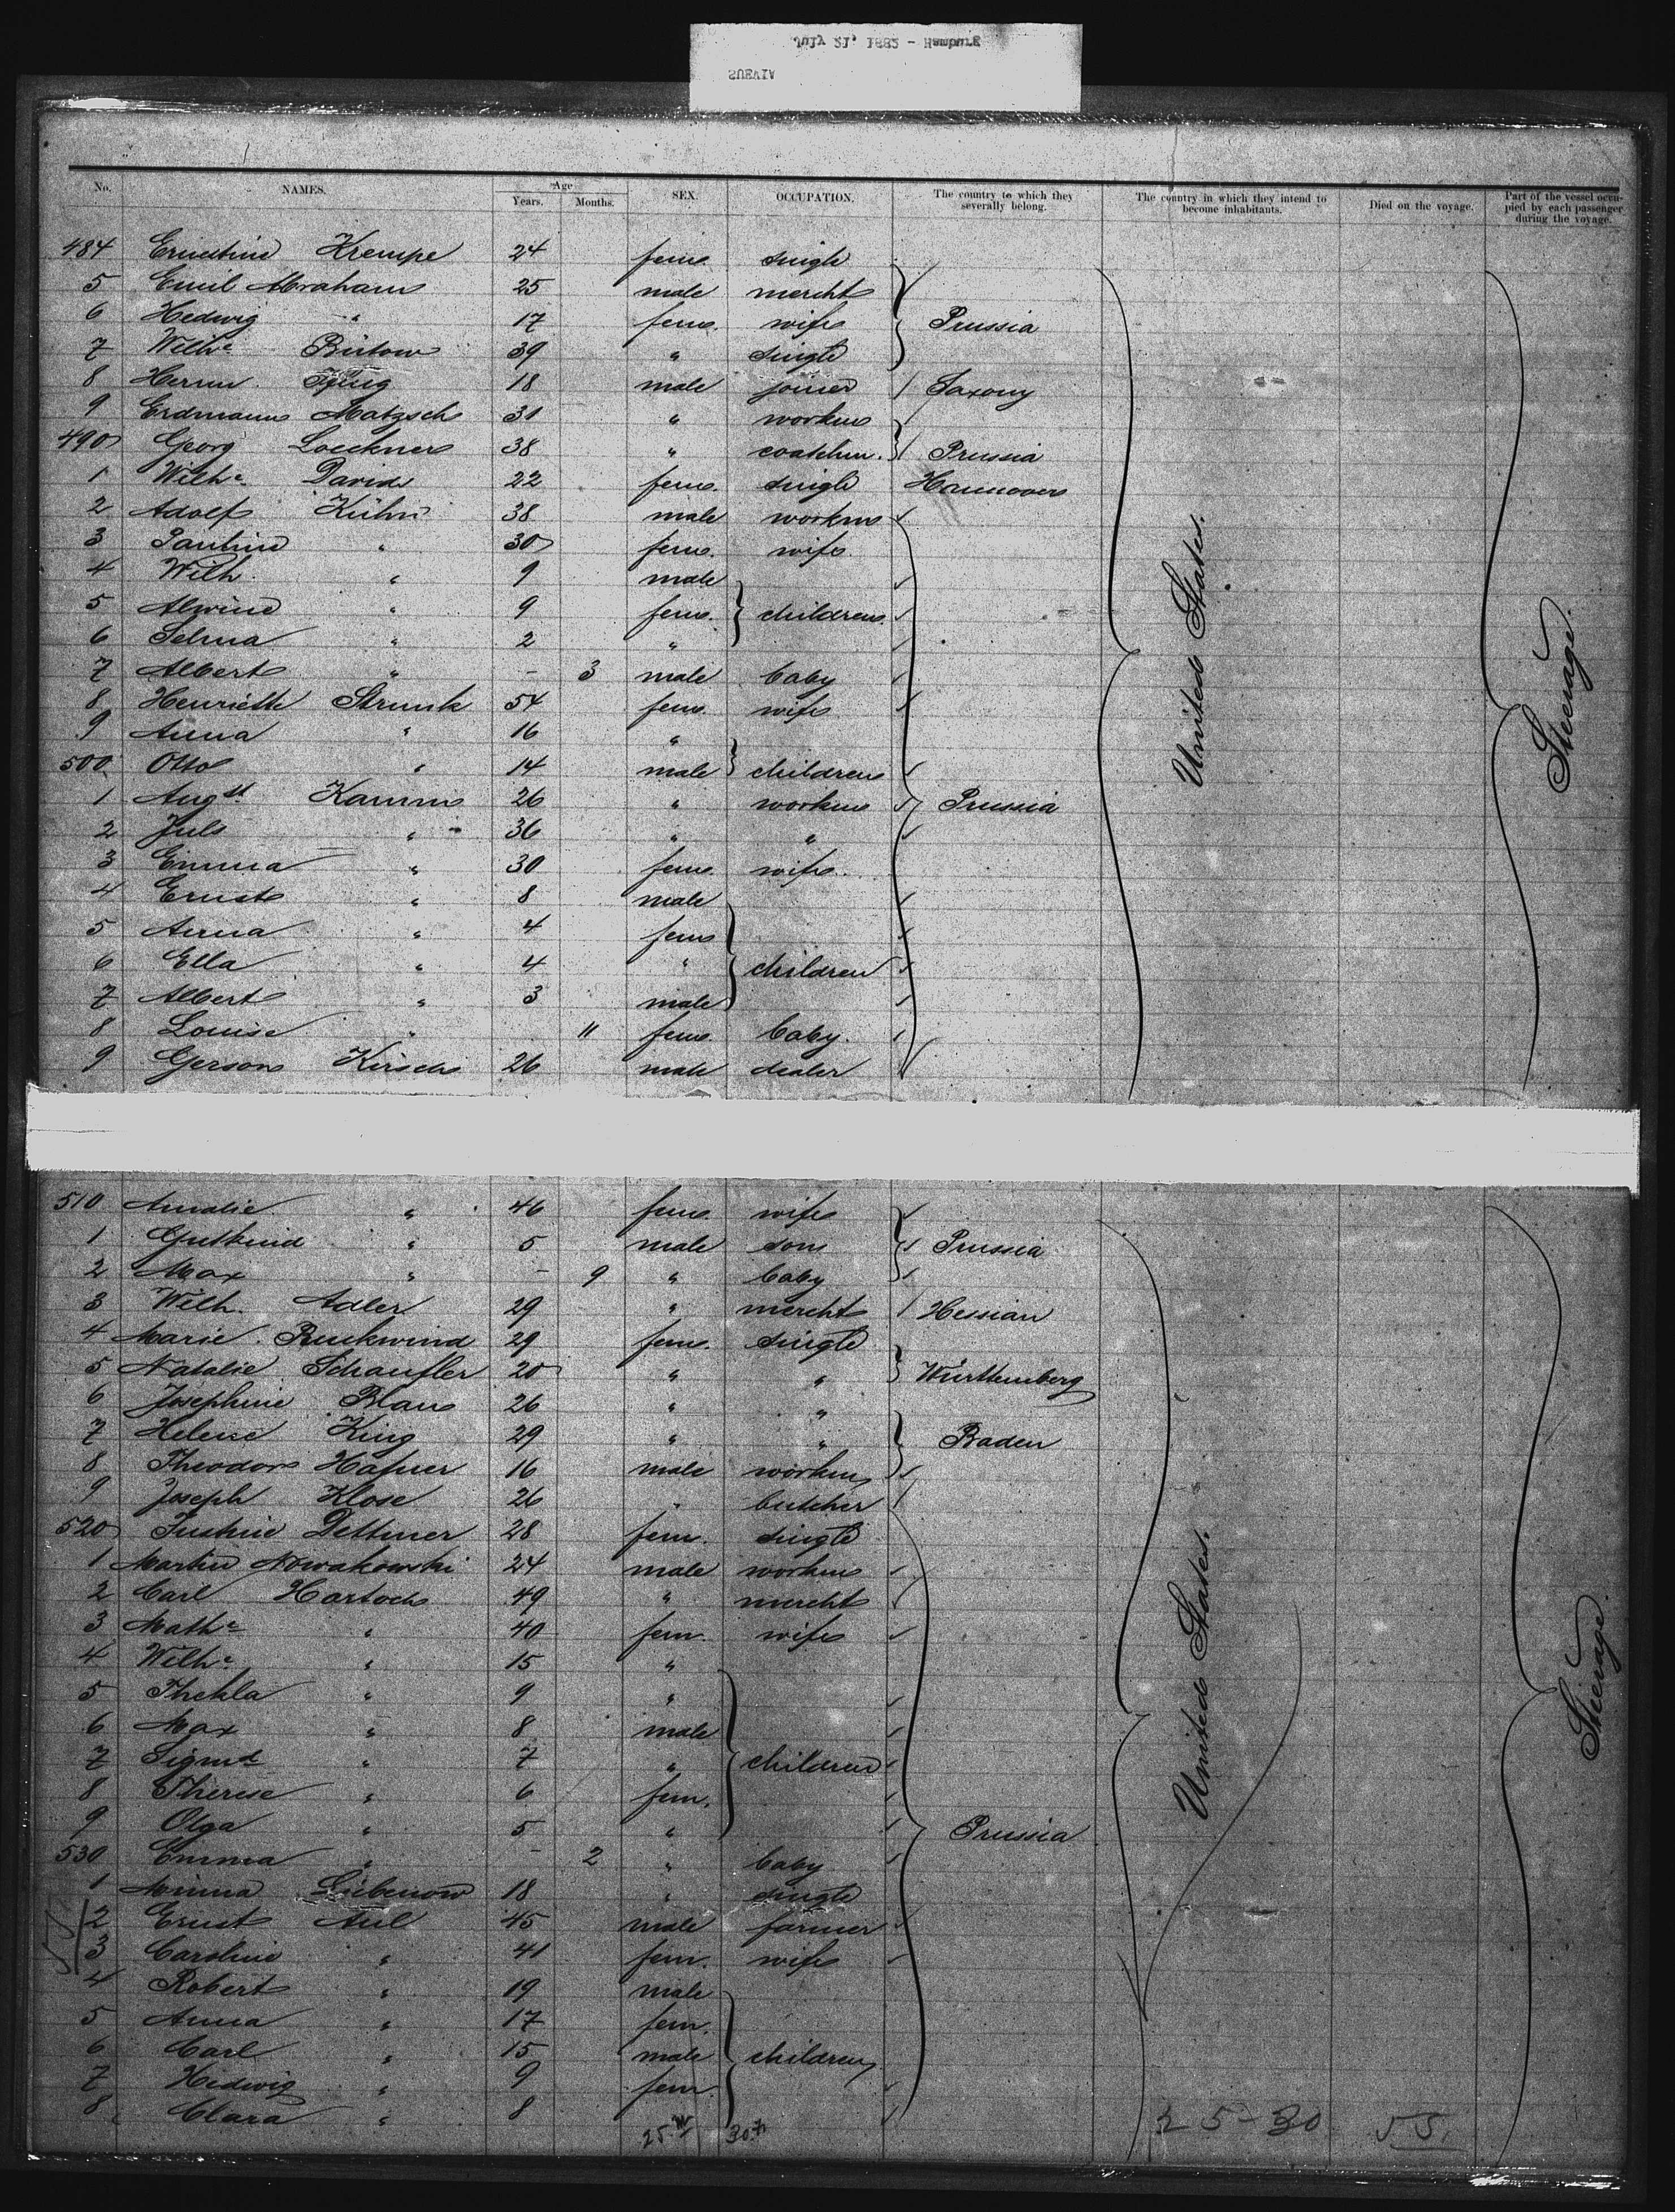 July 21, 1882 - Hamburg
SUEVIA
No. NAMES. Age Years. Months. SEX. OCCUPATION. The country to which they severally belong. The country in which they intend to become inhabitants. Died on the voyage. Part of the vessel occupied by each passenger during the voyage.
484 Ernestine Krempe 24 fem. single
5 Emil Abraham 25 male mercht
6 Hedwig " 17 fem. wife Prussia
7 Wilhe Bütow 39 " single
8 Herm. 18 male joiner Saxony
9 Erdmann Matzsch 31 " workm
490 Georg Loeckner 38 " coachm. Prussia
1 Wilhe David 22 fem. single Hannover
2 Adolf Kühn 38 male workm
3 Pauline " 30 fem. wife
4 Wilh. " 9 male
5 Alwine " 9 fem. children
6 Selma " 2 "
7 Albert " - 3 male baby
8 Henriette Strunk 54 fem. wife
9 Anna " 16 "
500 Otto " 14 male children
1 Augst Kamm 26 " workm Prussia
2 Juls " 36 " "
3 Emma " 30 fem. wife
4 Ernst " 8 male
5 Anna " 4 fem
6 Ella " 4 " children
7 Albert " 3 male
8 Louise " 11 fem baby
9 Gerson Kirsch 26 male dealer
United States.
Steerage.
510 Amalie " 46 fem. wife
1 Gutkind " 5 male son Prussia
2 Max " - 9 " baby
3 Wilh. Adler 29 " mercht Hessian
4 Marie Ruckwind 29 fem. single
5 Natalie Schaufler 20 " " Württemberg
6 Josephine Blau 26 " "
7 Helene King 29 " " Baden
8 Theodor Hafner 16 male workm
9 Joseph Klose 26 " butcher
520 Justine Dettmer 28 fem. single
1 Martin Nowakowski 24 male workm
2 Carl Hartoch 49 " mercht
3 Mathe " 40 fem. wife
4 Wilhe " 15 "
5 Thekla " 9 "
6 Max " 8 male
7 Sigmd " 7 " children
8 Therese " 6 fem.
9 Olga " 5 " Prussia
530 Emma " - 2 " baby
1 Minna Liebenow 18 " single
2 Ernst Aul 45 male farmer
3 Caroline " 41 fem. wife
4 Robert " 19 male
5 Anna " 17 fem.
6 Carl " 15 male children
7 Hedwig " 9 fem.
8 Clara " 8
United States.
Steerage.
25 30 25-30 55.